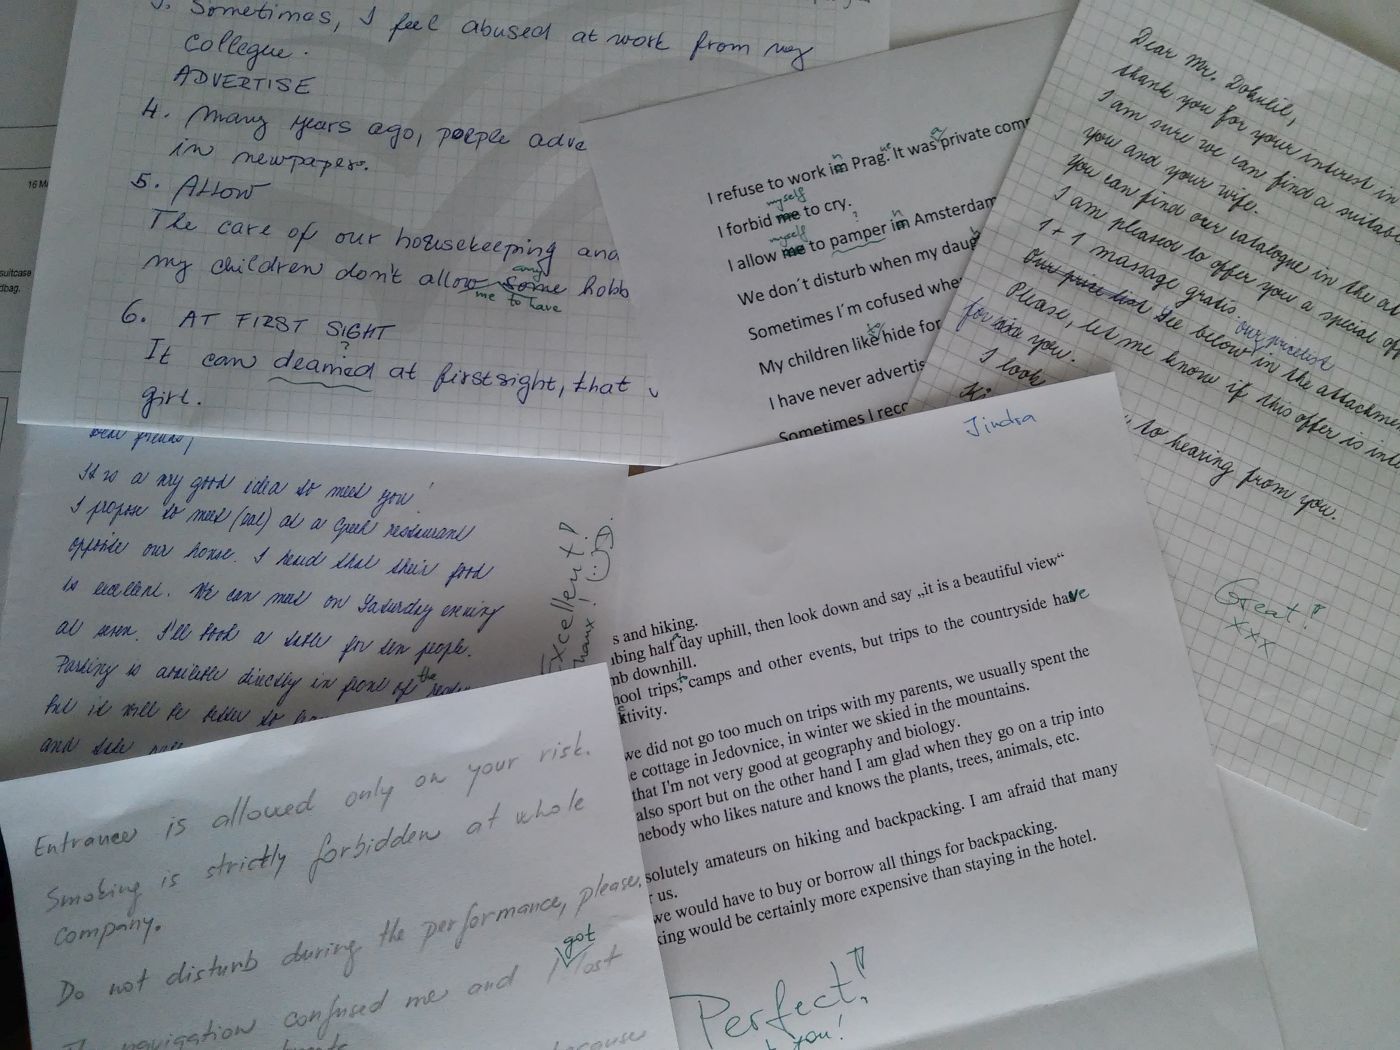 3. Sometimes, I feel abused at work from my
collegue.
ADVERTISE
4. Many years ago, people adve
in newpapers.
5. ALLOW
The care of our housekeeping and
my children don't allow some hobb
any
me to have
6. AT FIRST SIGHT
?
It can deamed at first sight, that
girl.
16 M
suitcase
dbag.
I refuse to work im Prag. It was private comp
n
ue
a
I forbid me to cry.
myself
I allow me to pamper im Amsterdam
myself
?
n
We don´t disturb when my daug
Sometimes I´m cofused whe
My children like hide for
to
I have never advertis
Sometimes I reco
Dear Mr. Dokulil,
thank you for your interest in
I am sure we can find a suitabl
you and your wife.
You can find our catalogue in the at
I am pleased to offer you a special off
1+1 massage gratis.
Our price list See below in the attachmen
our pricelist
Please, let me know if this offer is inte
for you.
I look
Ki
to hearing from you.
Great!
xxx
It is a very good idea to meet you!
I propose to meet (eat) at a Greek restaurant
opposite our house. I heard that their food
is excellent. We can meet on Saturday evening
at seven. I'll book a table for ten people.
Parking is available directly in front of
the
but it will be better to
and take
Excellent!
Thanx! :D
Jindra
s and hiking.
bing half day uphill, then look down and say „it is a beautiful view“
a
mb downhill.
ool trips, camps and other events, but trips to the countryside have
ktivity.
we did not go too much on trips with my parents, we usually spent the
e cottage in Jedovnice, in winter we skied in the mountains.
that I'm not very good at geography and biology.
also sport but on the other hand I am glad when they go on a trip into
nebody who likes nature and knows the plants, trees, animals, etc.
solutely amateurs on hiking and backpacking. I am afraid that many
r us.
we would have to buy or borrow all things for backpacking.
king would be certainly more expensive than staying in the hotel.
Perfect!
you!
Entrance is allowed only on your risk.
Smoking is strictly forbidden at whole
company.
Do not disturb during the performance, please.
The navigation confused me and I lost
got
because